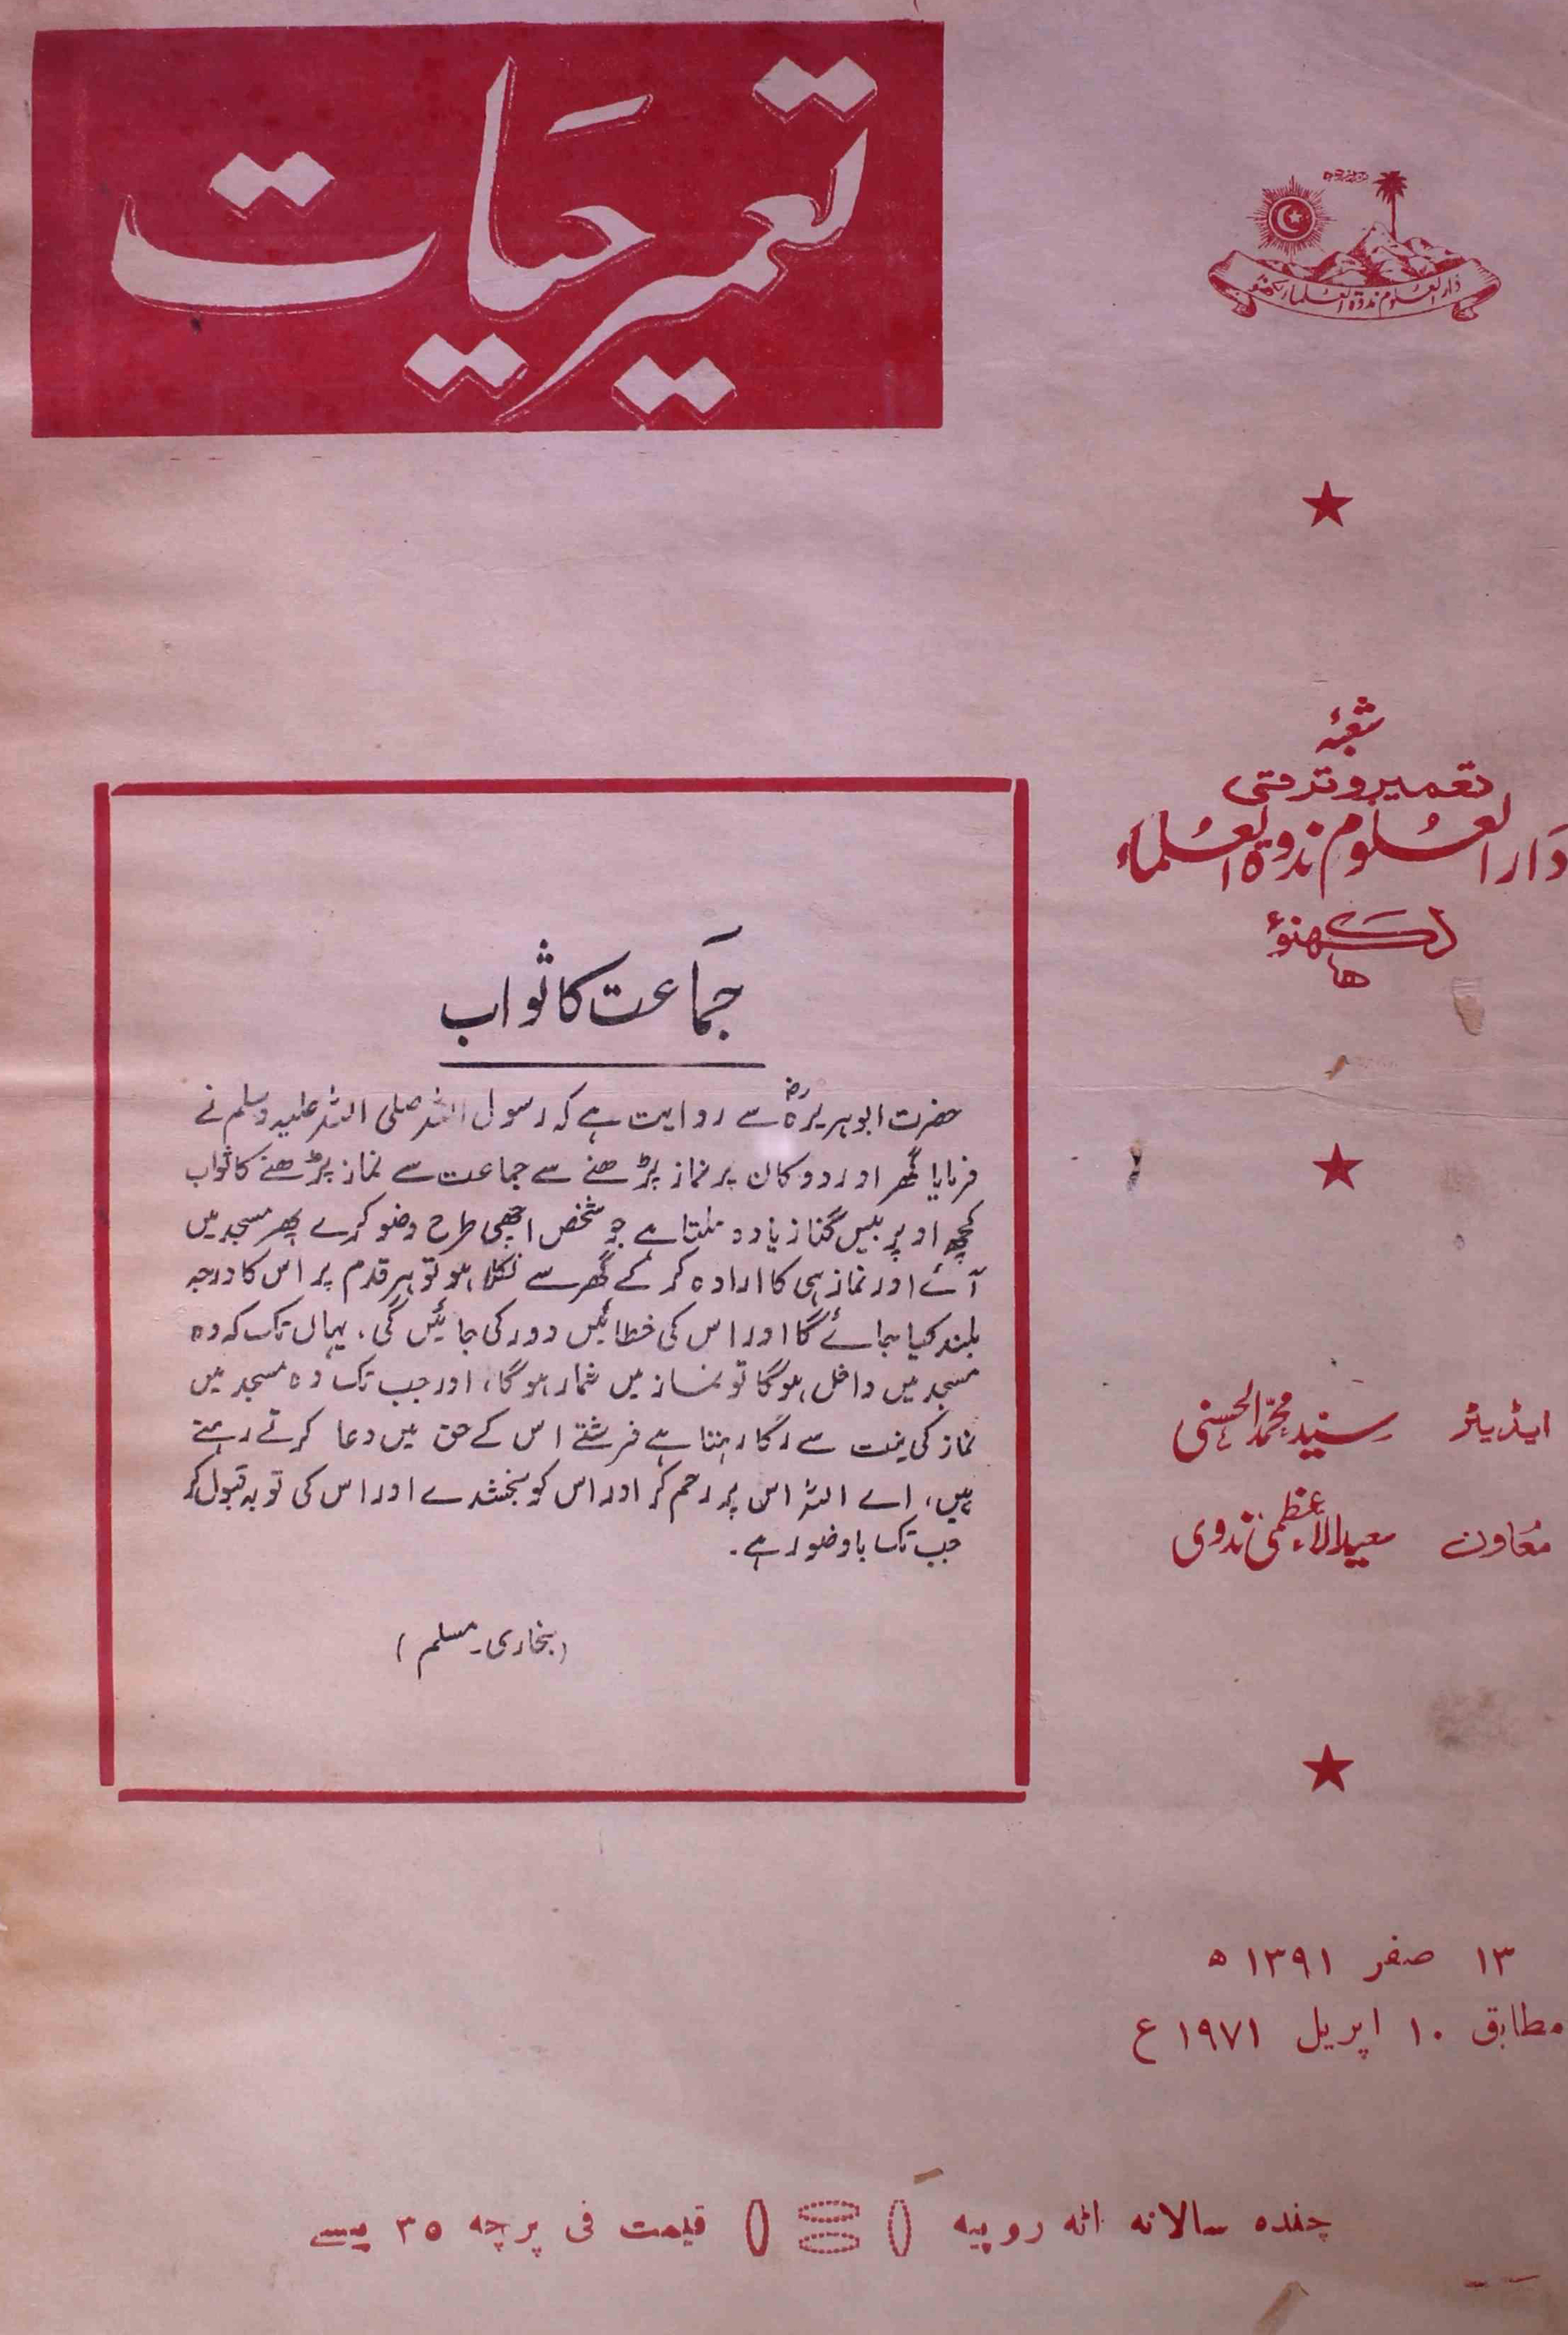 تعمیر حیات
دارالعلوم ندوۃ العلماء لکھنؤ
شعبۂ
تعمیر و ترقی
دارالعلوم ندوۃ العلماء
لکھنؤ
جماعت کا ثواب
حضرت ابوہریرہؓ سے روایت ہے کہ رسول اللہ صلی اللہ علیہ وسلم نے
فرمایا گھر اور دوکان پر نماز پڑھنے سے جماعت سے نماز پڑھنے کا ثواب
کچھ اوپر بیس گنا زیادہ ملتا ہے جو شخص اچھی طرح وضو کرے پھر مسجد میں
آئے اور نماز ہی کا ارادہ کر کے گھر سے نکلا ہو تو ہر قدم پر اس کا درجہ
بلند کیا جائے گا اور اس کی خطائیں دور کی جائیں گی، یہاں تک کہ وہ
مسجد میں داخل ہوگا تو نماز میں شمار ہوگا، اور جب تک وہ مسجد میں
نماز کی نیت سے رکا رہتا ہے فرشتے اس کے حق میں دعا کرتے رہتے
ہیں، اے اللہ اس پر رحم کر اور اس کو بخشدے اور اس کی توبہ قبول کر
جب تک باوضو رہے۔
(بخاری۔ مسلم)
ایڈیٹر سید محمد الحسنی
معاون سعید الاعظمی ندوی
۱۳ صفر ۱۳۹۱ ھ
مطابق ۱۰ اپریل ۱۹۷۱ ع
چندہ سالانہ اٹھ روپیہ قیمت فی پرچہ ۳۵ پیسے